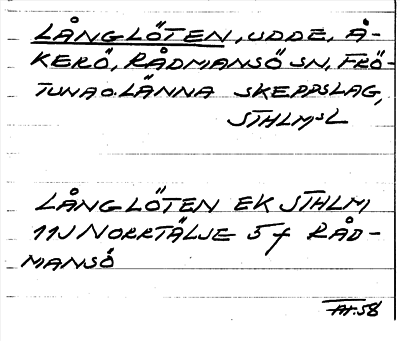 LÅNGLÖTEN, UDDE, Å-
KERÖ, RÅDMANSÖ SN, FRÖ-
TUNA O. LÄNNA SKEPPSLAG,
STHLMSL
LÅNGLÖTEN EK STHLM
11J NORRTÄLJE 5f RÅD-
MANSÖ
58